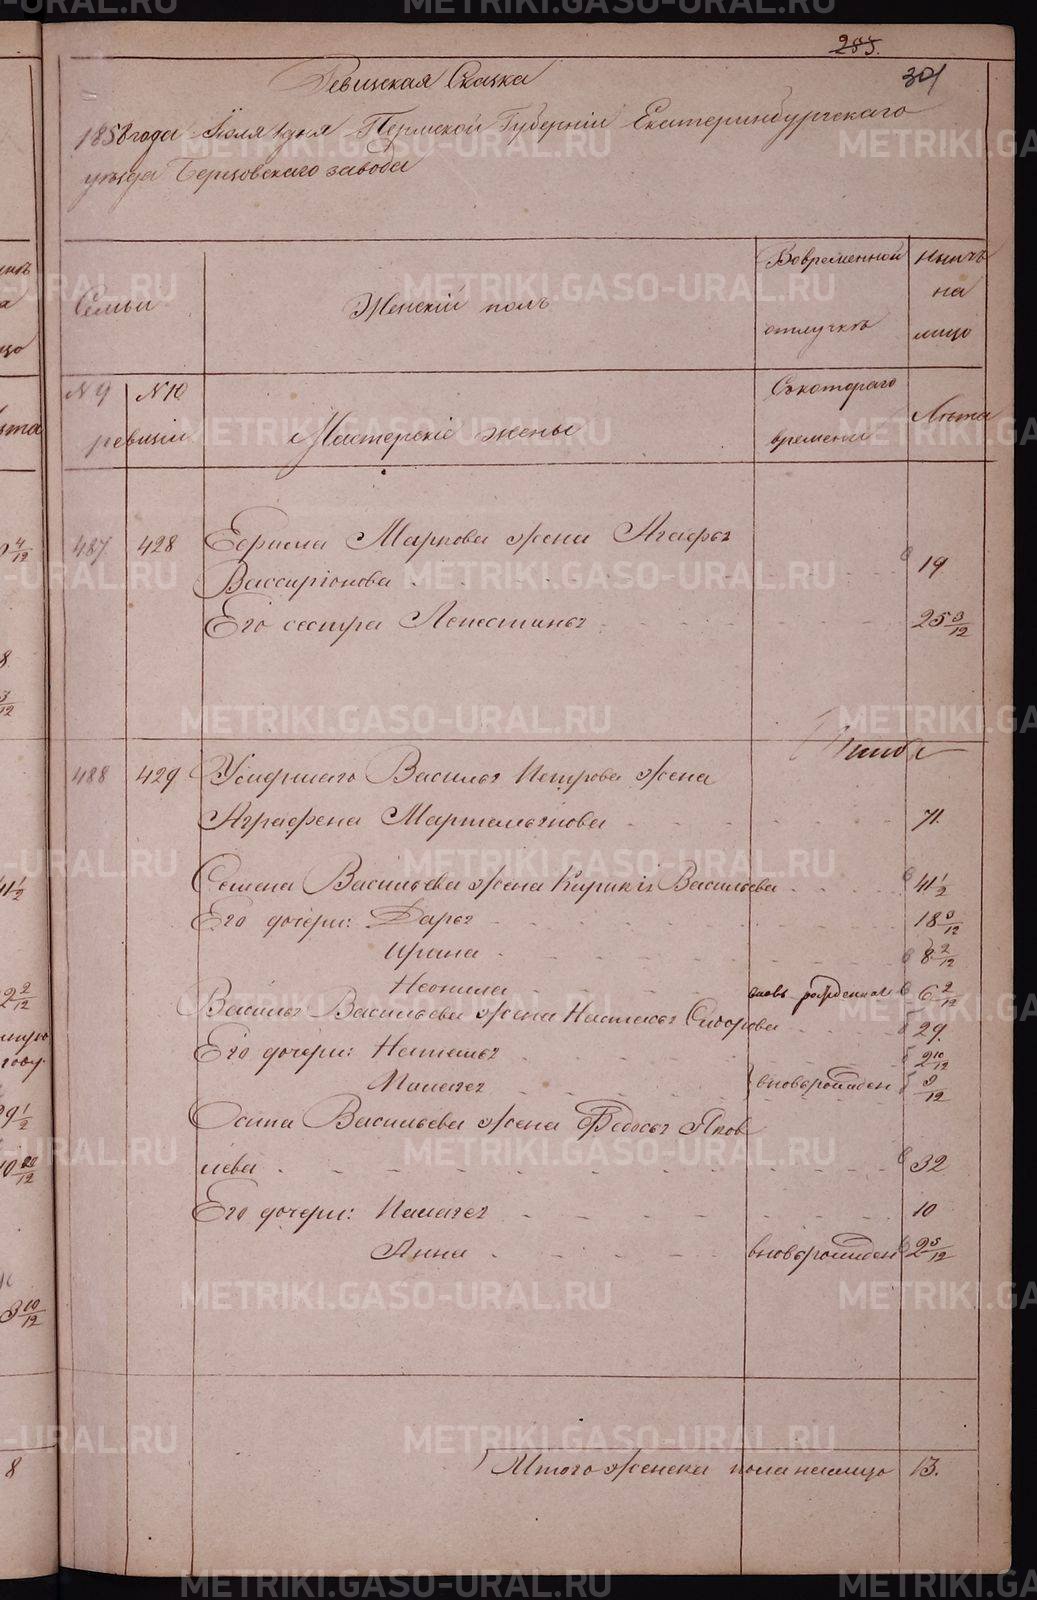 285.
301
Ревизская Сказка
1858 года Іюля 1 дня Пермской Губерніи Екатеринбургскаго
уѣзда Березовскаго завода
Семьи
Женскій полъ
Вовременной отлучкѣ
Нынѣ на лицо
№ 9 № 10
ревизіи
Мастерскіе жены
Съкотораго времени
Лѣта
487 428 Ефима Маркова жена Агафья
Вассаріонова 19
Его сестра Апестинья 25 3/12
488 429 Умершаго Василья Петрова жена
Аграфена Мартемьянова 71.
Семена Васильева жена Кирикія Васильева 41 1/2
Его дочери: Дарья 18 3/12
Ирина 8 2/12
Неонила вновь рожденная 6 2/12
Василья Васильева жена Настасья Сидорова 29.
Его дочери: Наталья 2 10/12
Малагея вновьрожден 9/12
Осипа Васильева жена Федосья Яков
лева 32
Его дочери: Палагея 10
Анна вновьрожден 2 5/12
Итого женска пола налицо 13.
METRIKI.GASO-URAL.RU